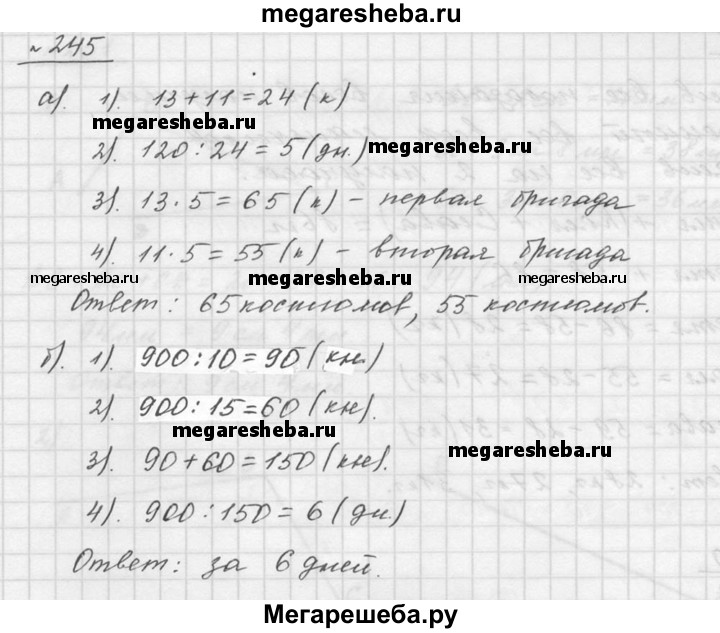 megaresheba.ru
№ 245
а). 1). 13 + 11 = 24 (к)
megaresheba.ru
2). 120 : 24 = 5 (дн.) megaresheba.ru
3). 13 · 5 = 65 (к) – первая бригада
4). 11 · 5 = 55 (к) – вторая бригада
megaresheba.ru megaresheba.ru megaresheba.ru
Ответ: 65 костюмов, 55 костюмов.
б). 1). 900 : 10 = 90 (кн.)
2). 900 : 15 = 60 (кн).
megaresheba.ru
megaresheba.ru
3). 90 + 60 = 150 (кн).
4). 900 : 150 = 6 (дн.)
Ответ: за 6 дней.
Мегарешеба.ру